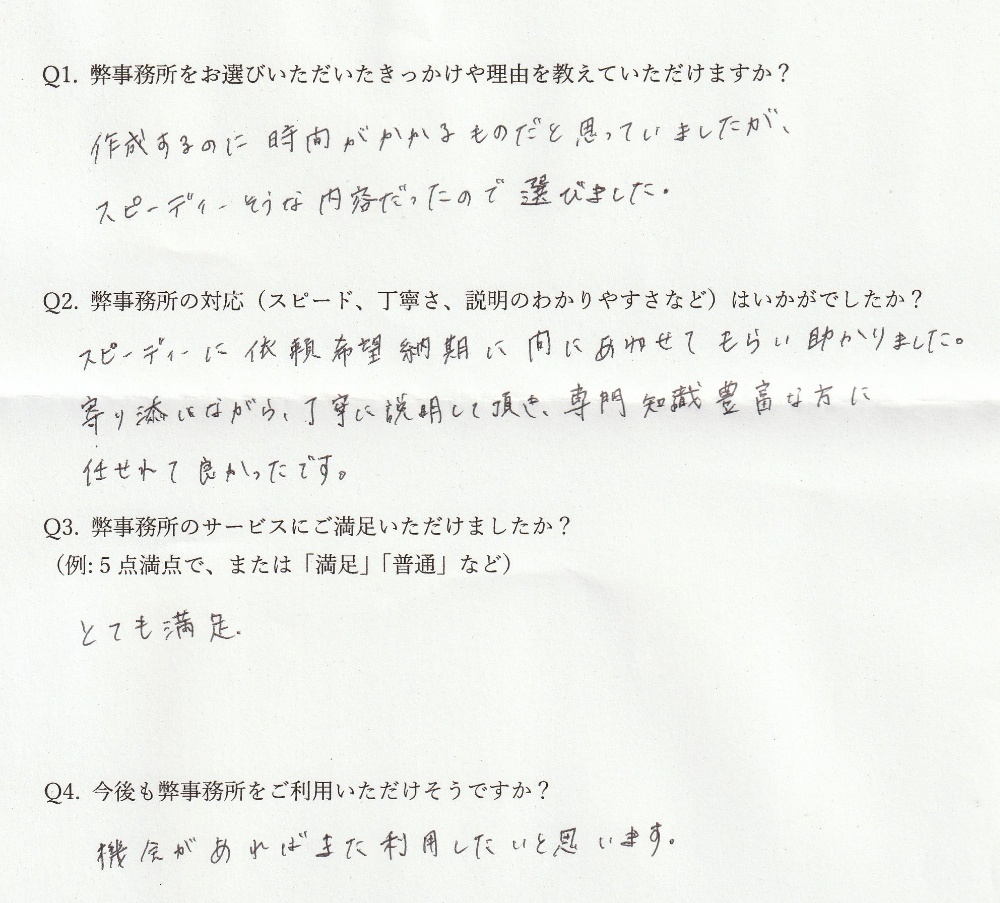 Q1. 弊事務所をお選びいただいたきっかけや理由を教えていただけますか？
作成するのに時間がかかるものだと思っていましたが、
スピーディーそうな内容だったので選びました。
Q2. 弊事務所の対応（スピード、丁寧さ、説明のわかりやすさなど）はいかがでしたか？
スピーディーに依頼希望納期に間にあわせてもらい助かりました。
寄り添いながら、丁寧に説明して頂き、専門知識豊富な方に
任せれて良かったです。
Q3. 弊事務所のサービスにご満足いただけましたか？
（例: 5 点満点で、または「満足」「普通」など）
とても満足.
Q4. 今後も弊事務所をご利用いただけそうですか？
機会があればまた利用したいと思います。